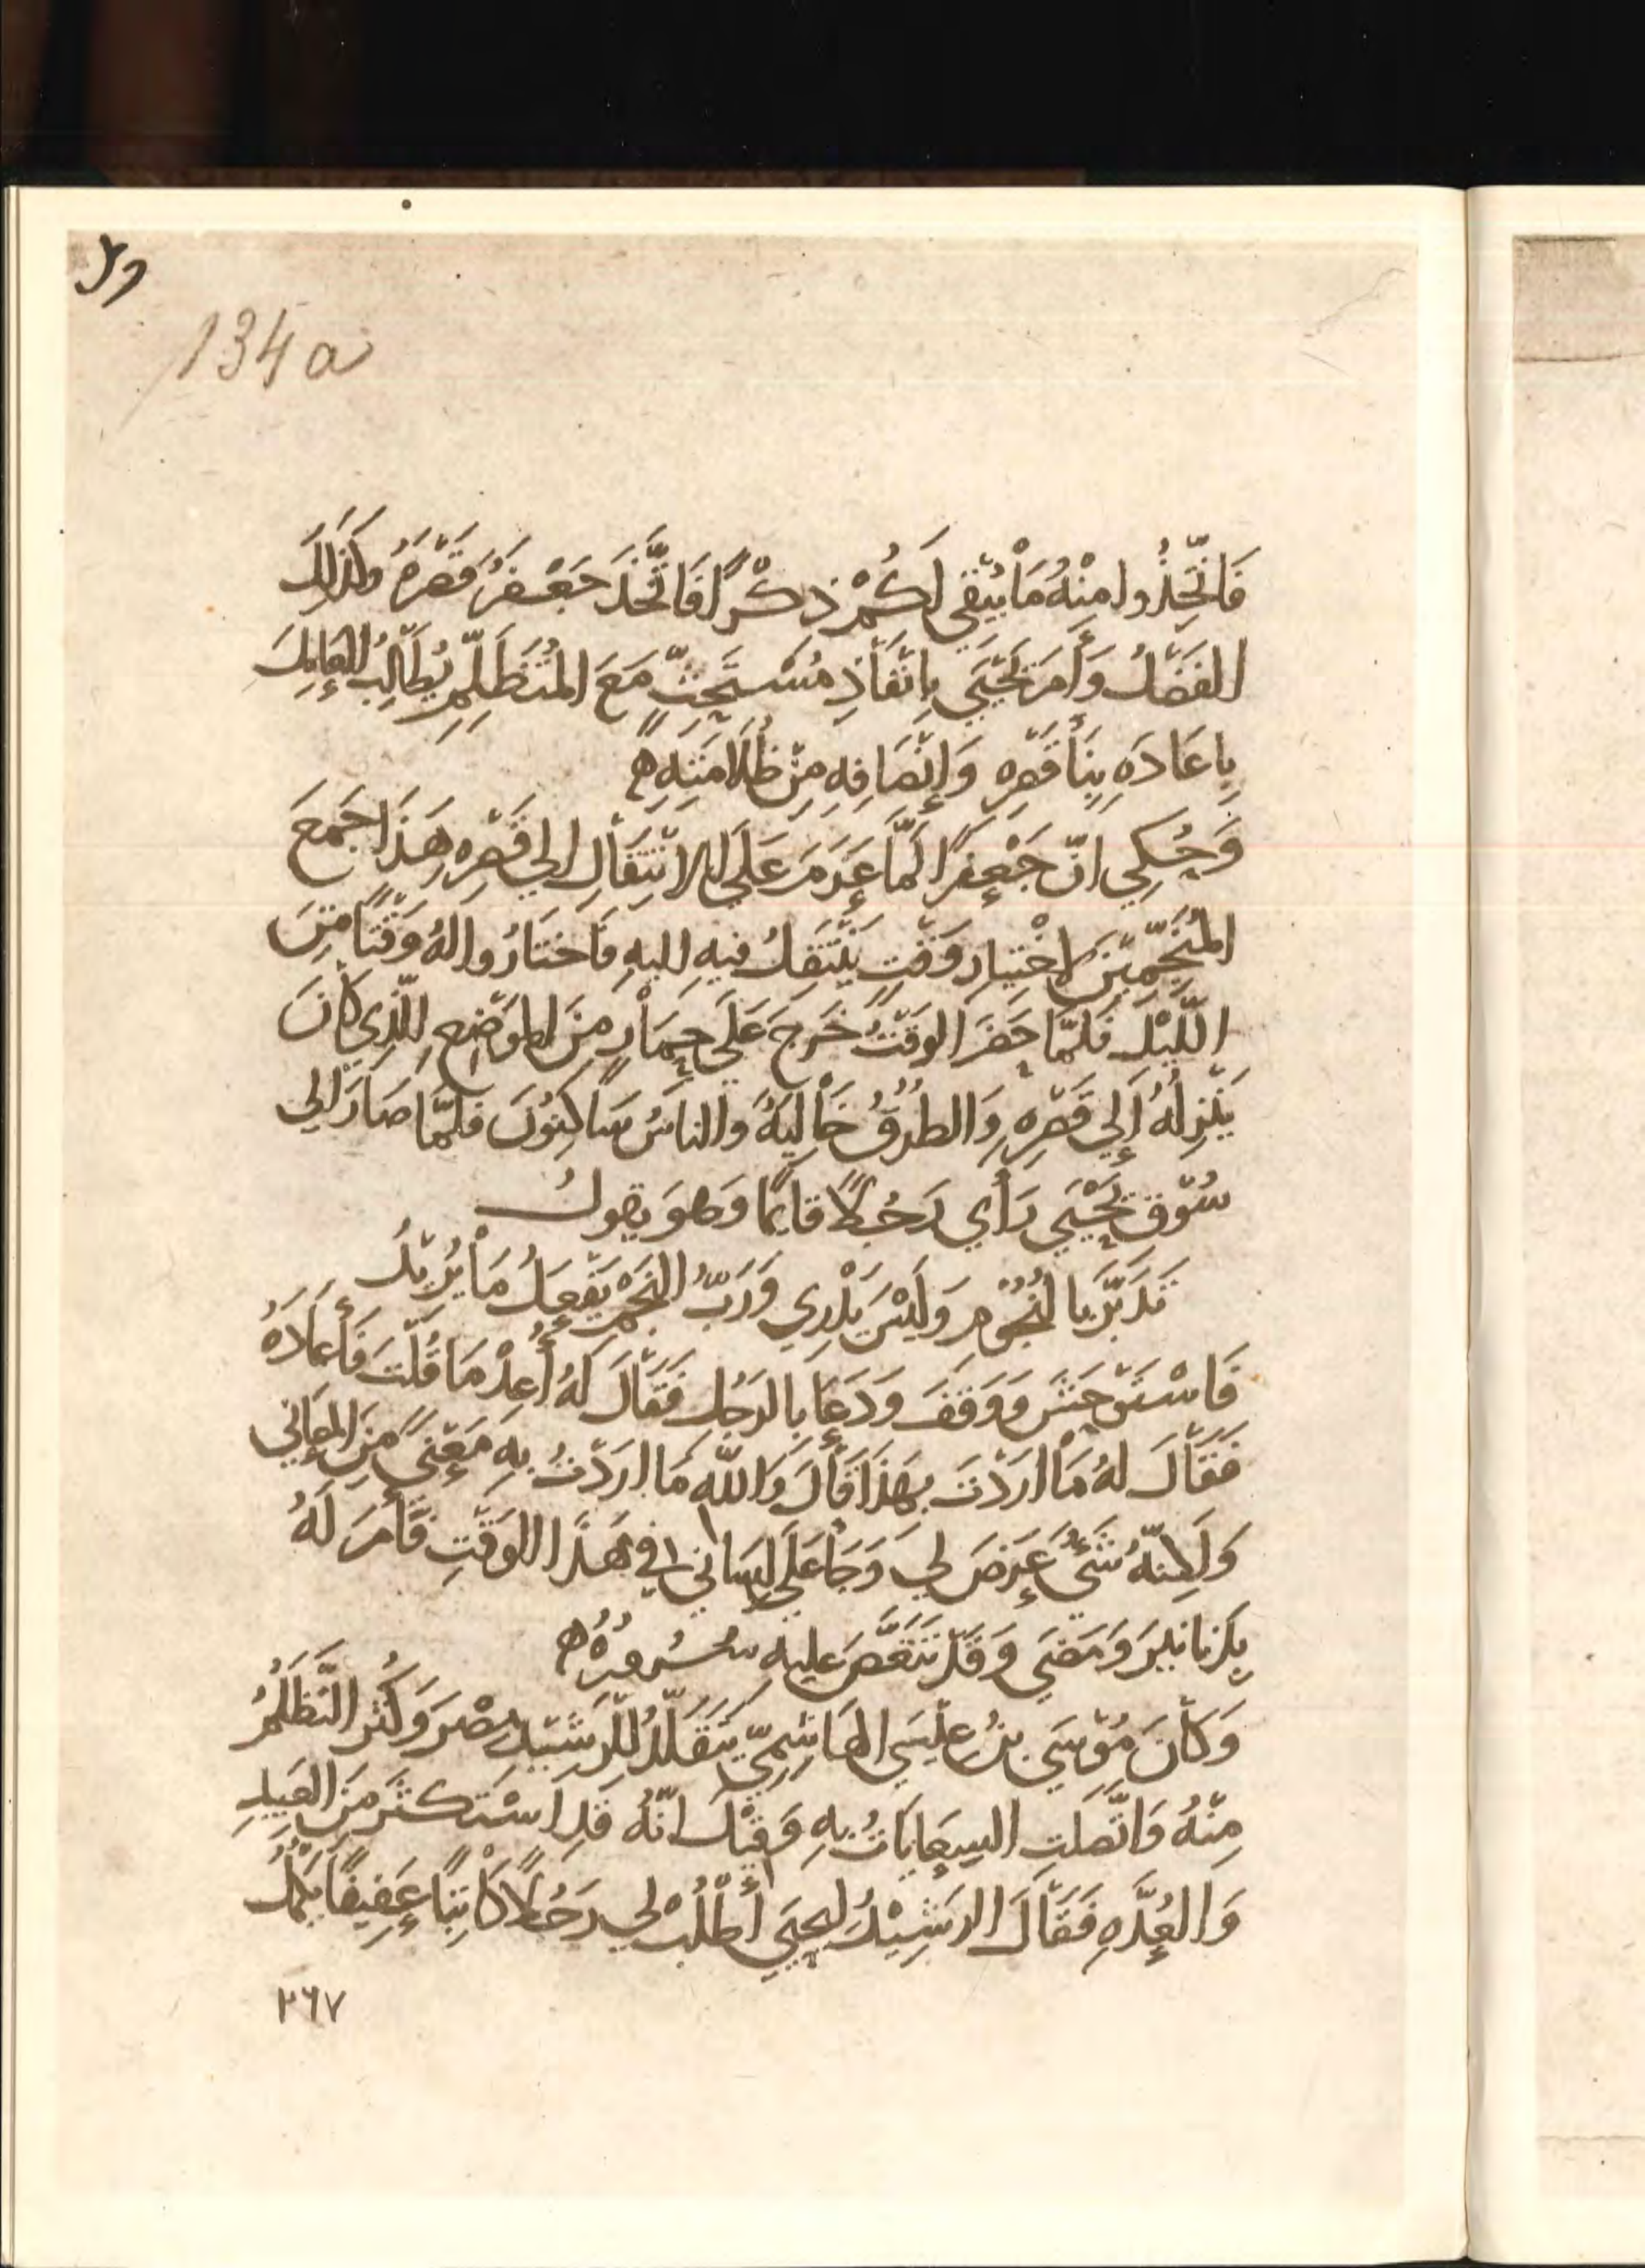 وى
134a
فَاتّخِذُوا مِنْهُ مَا يُبْقِي لَكُمْ ذِكْرًا فَاتَّخَذَ جَعْفَرُ قَصْرَهُ وَكَذَلِكَ
الفَضْلُ وَأَمَرَ يَحْيَي بِإنْفَاذِ مُسْتَحِثّ مَعَ المُتَظَلِّمِ يُطَالِبُ العَامِلَ
بِإعَادَهِ بِنَا قَصْرِهِ وَإِنْصَافِهِ مِنْ ظُلَامَتِهِ ه
وَحُكِي انّ جَعْفَرًا لَمَّا عَزَمَ عَلَي الانْتِقَالِ الي قَصْرِه هَذَا جَمَعَ
المُنَجِّمِيْنَ لاخْتِيارِ وَقْتٍ يَنْتَقِلُ فيهِ اليهِ فَاخْتَارُوا لهُ وَقْتًا مِنَ
اللَّيْلِ فَلَمّا حَضَرَ الوَقْتُ خَرَجَ عَلَي حِمَارٍ مِنَ الموْضِعِ الّذِي كَانَ
يَنْزِلُهُ إلي قَصْرِهِ وَالطُرُقُ خَالِيَهٌ وَالناسُ سَاكِنُونَ فَلَمّا صَارَ الي
سُوْقِ يَحْيَي رَأي رَجُلًا قايِمًا وَهُوَ يقولُ
تَدَبَّرَ بالنُجُوْمِ وَلَيْسَ يَدْرِي وَرَبُّ النَجْمِ يَفْعَلُ مَا يُرِيْدُ
فَاسْتَوْحَشَ وَوَقَفَ وَدَعَا بِالرَجُلِ فَقَالَ لهُ أعِدْ مَا قُلْتَ فَأعَادَهُ
فَقَالَ لهُ مَا ارَدْتَ بِهَذَا قَالَ وَاللّه مَا ارَدْتُ بِهِ مَعْنيً مِنَ المعَاني
وَلَكِنّهُ شَيْءٌ عَرَضَ لِي وَجَا عَلَي لِسَاني في هَذَا الوَقْتِ فَأمَرَ لَهُ
بِدَنانيرَ وَمَضَي وَقَدْ تَنَغَّصَ عليهِ سُرُورُهُ ه
وَكَانَ مُوْسَي بنُ عِيْسَي الهَاشِمِيّ يَتَقَلَّدُ للرَشيْدِ مِصْرَ وَكَثُرَ التَّظَلُّمُ
مِنْهُ وَاتّصَلَتِ السِعَايَاتُ بِهِ وَقِيْلَ انّهُ قَدِ اسْتَكثَرَ مِنَ العَبِيدِ
وَالعُدَّهِ فَقَالَ الرَشِيْدُ لِيحيَي أطْلُبْ لي رَجُلًا كَاتِبًا عَفِيفًا يَكْمُلُ
٢٦٧